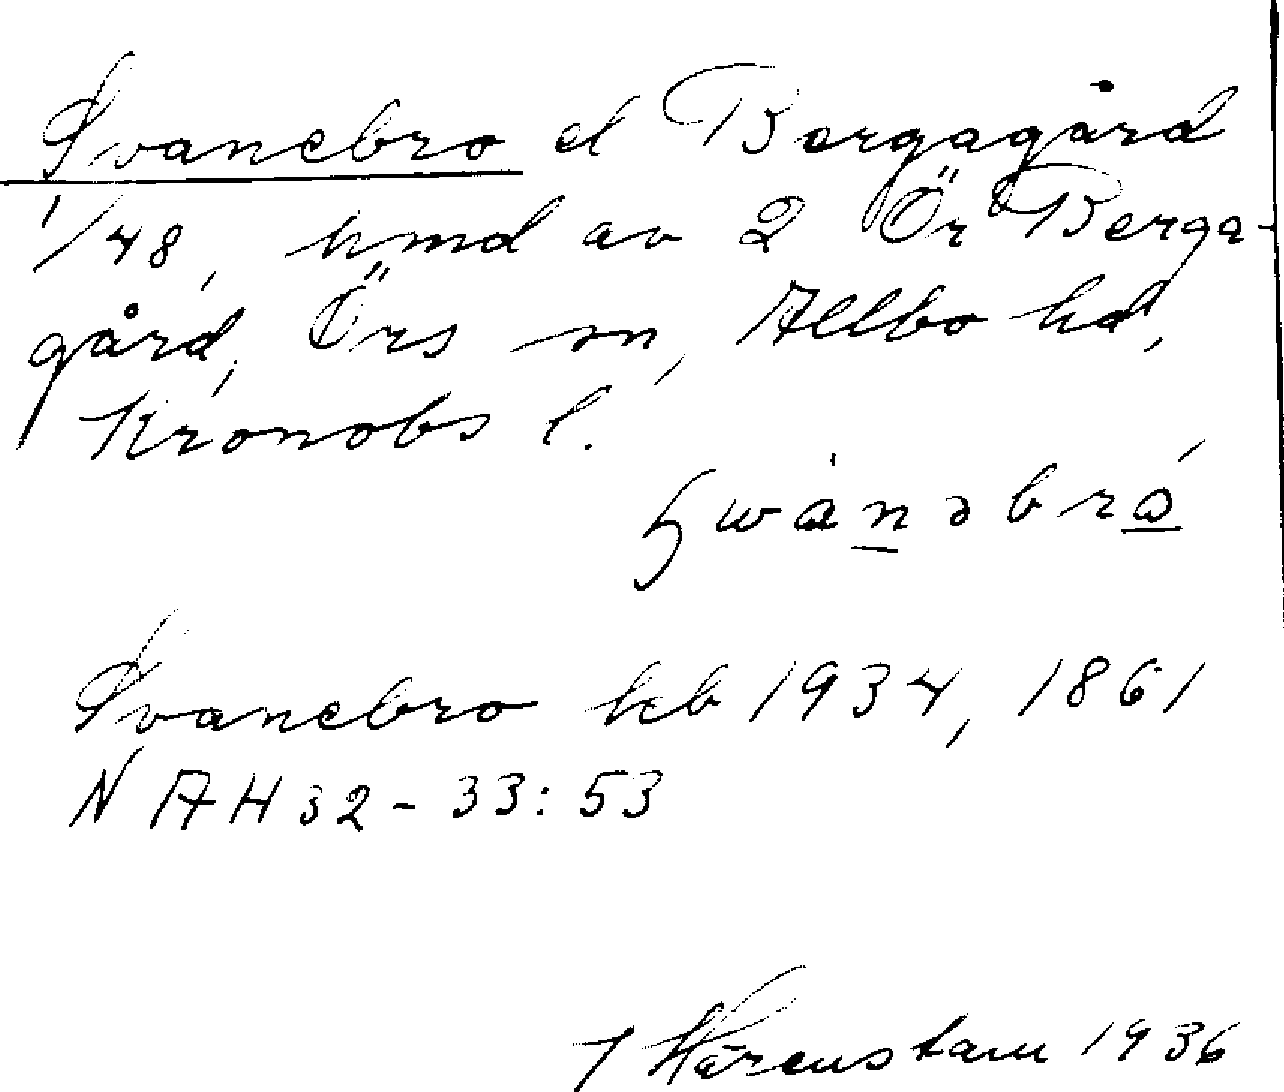 Svanebro el Bergagård
1/48, hmd av 2 Ör Berga-
gård, Örs sn, Allbo hd,
Kronobs l.
swánəbrò
Svanebro keb 1934, 1861
N AH 32-33:53
1936